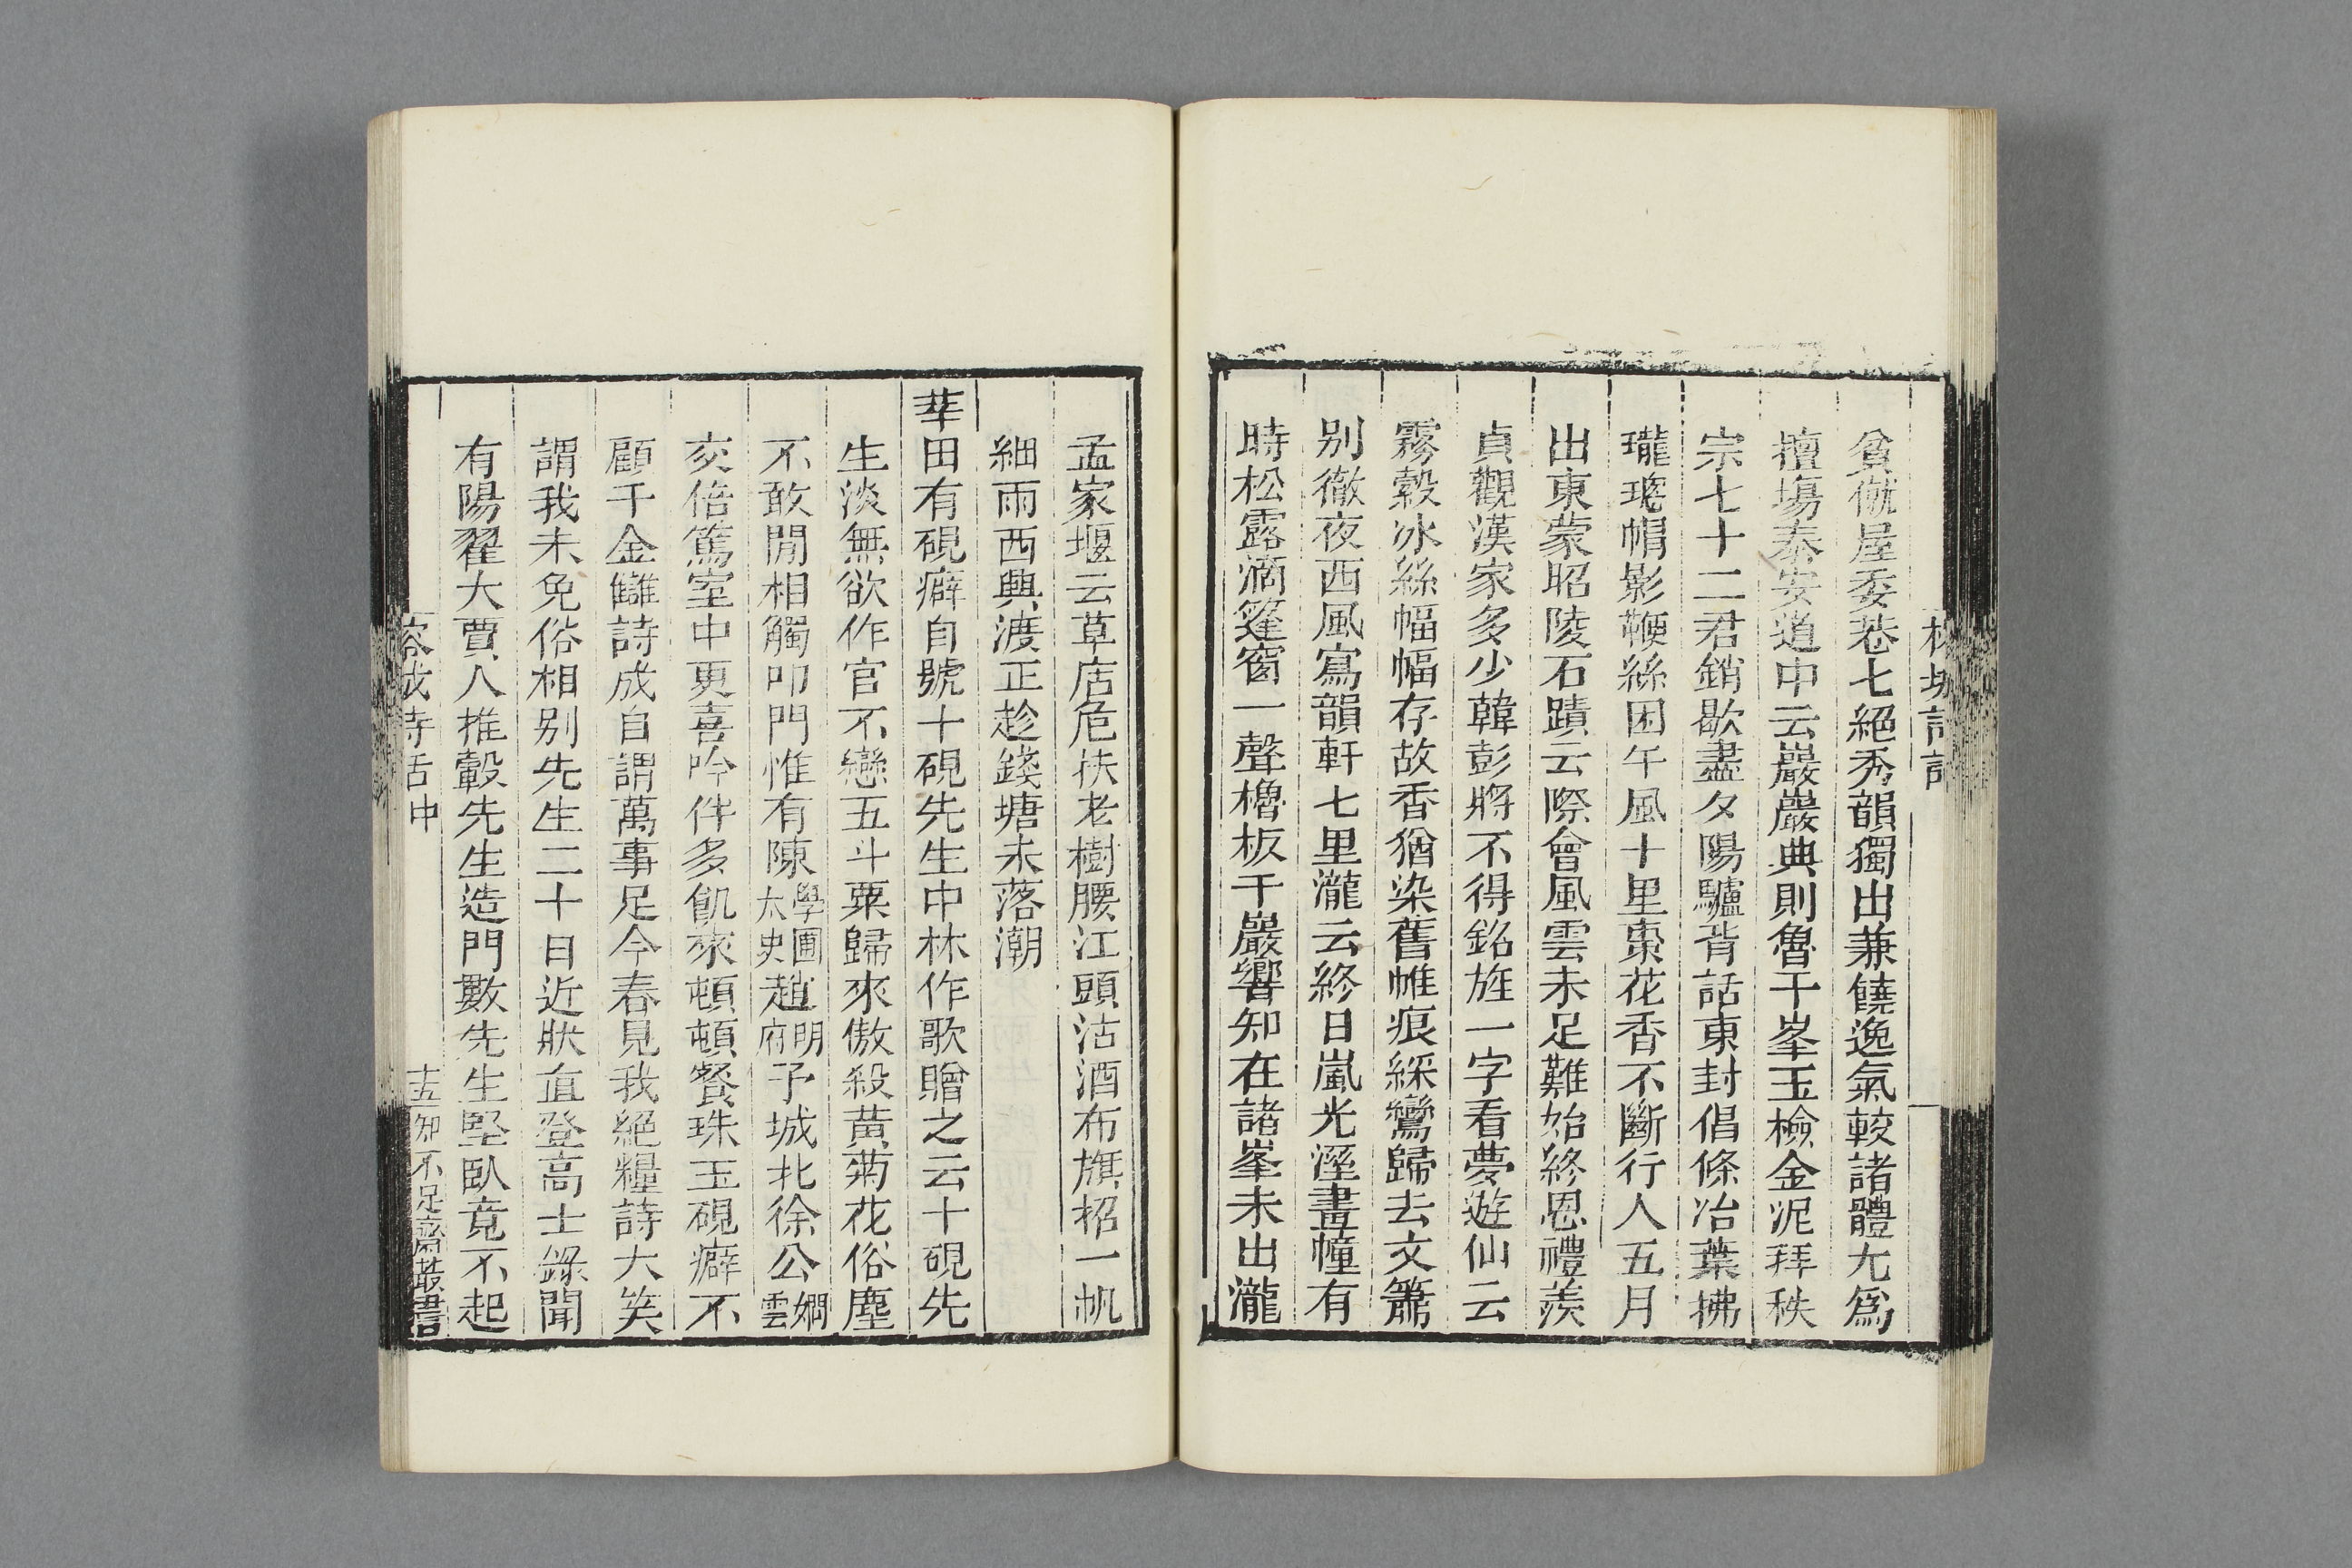 貧僦屋委巷七絕秀韻獨出兼饒逸氣較諸體尤爲
擅場泰安道中云巖巖典則魯千峯玉檢金泥拜秩
宗七十二君銷歇盡夕陽驢背話東封倡條冶葉拂
瓏璁帽影鞭絲困午風十里棗花香不斷行人五月
出東蒙昭陵石蹟云際會風雲未足難始終恩禮羨
貞觀漢家多少韓彭將不得銘旌一字看夢遊仙云
霧縠冰絲幅幅存故香猶染舊帷痕綵鸞歸去文簫
别徹夜西風寫韻軒七里瀧云終日嵐光溼畫幢有
時松露滴篷窗一聲櫓板千巖響知在諸峯未出瀧
孟家堰云草店危扶老樹腰江頭沽酒布旗招一帆
細雨西興渡正趁錢塘未落潮
莘田有硯癖自號十硯先生中林作歌贈之云十硯先
生淡無欲作官不戀五斗粟歸來傲殺黃菊花俗塵
不敢閒相觸叩門惟有陳學圃太史趙明府予城北徐公嫺雲
交倍篤室中更喜吟伴多飢來頓頓餐珠玉硯癖不
顧千金讎詩成自謂萬事足今春見我絕糧詩大笑
謂我未免俗相别先生二十日近狀直登高士錄聞
有陽翟大賈人推轂先生造門數先生堅臥竟不起
榕城詩話中
十五知不足齋叢書